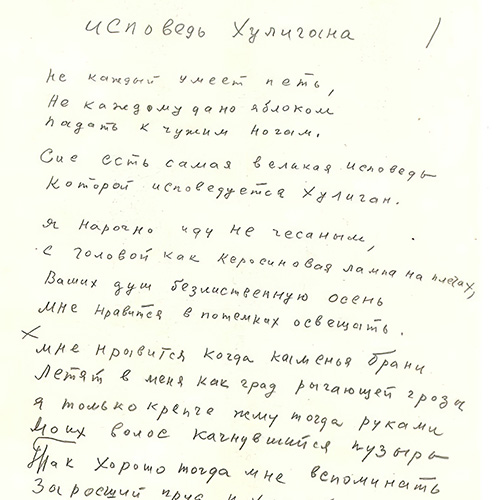 Исповедь Хулигана /
Не каждый умеет петь,
Не каждому дано яблоком
Падать к чужим ногам.
Сие есть самая великая исповедь
Которой исповедуется Хулиган.
Я нарочно иду не чесаным,
с головой как керосиновая лампа на плечах,
Ваших душ безлиственную осень
мне нравится в потемках освещать.
X
мне нравится когда каменья брани
Летят в меня как град рыгающей грозы
я только крепче жму тогда руками
Моих волос качнувшийся пузырь
Так хорошо тогда мне вспоминать
Заросший пруд и